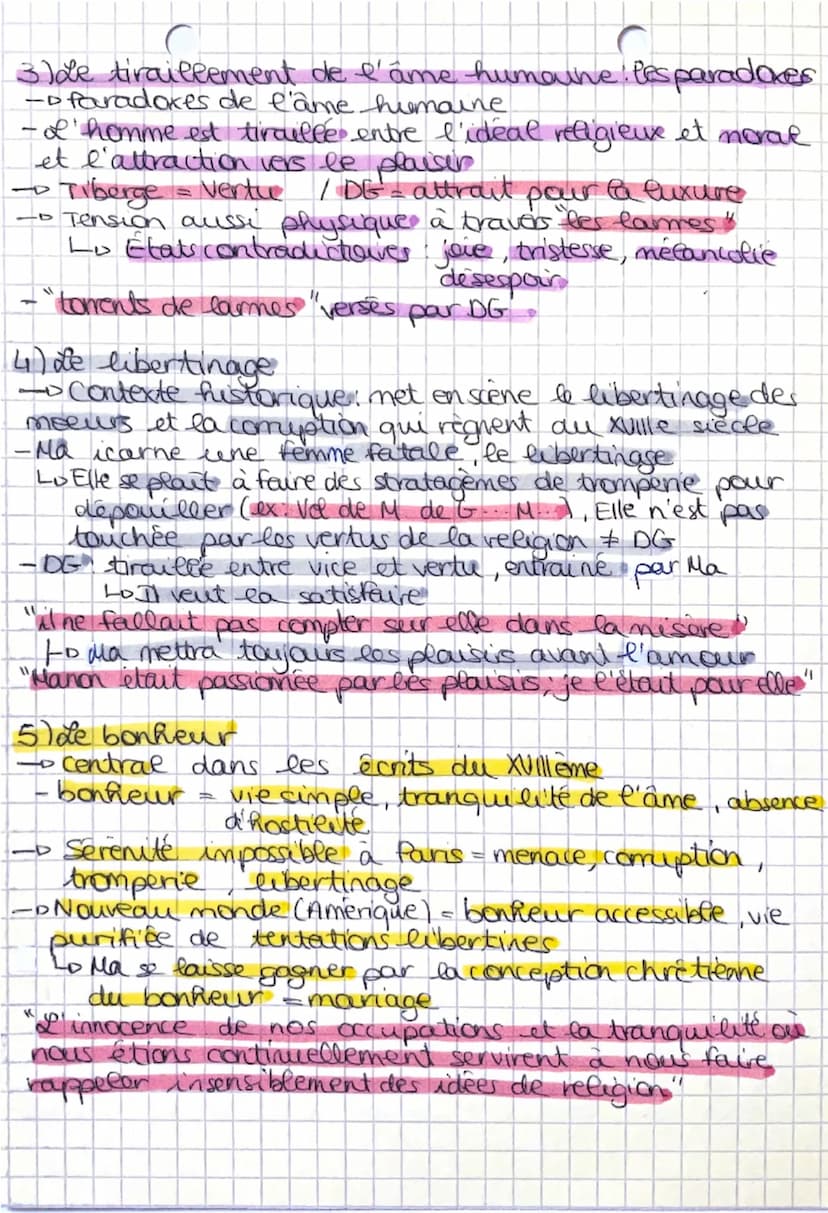 3) Le tiraillement de l'âme humaine : les paradoxes
→ Paradoxes de l'âme humaine
- L'homme est tiraillé entre l'idéal religieux et moral
et l'attraction vers le plaisir
→ Tiberge = Vertu / DG = attrait pour la luxure
→ Tension aussi physique à travers "les larmes"
↳ États contradictoires : joie, tristesse, mélancolie
désespoir
- "torrents de larmes" versés par DG
4) Le libertinage
→ Contexte historique : met en scène le libertinage des
moeurs et la corruption qui règnent au XVIIIe siècle
- Ma icarne une femme fatale, le libertinage
↳ Elle se plaît à faire des stratagèmes de tromperie pour
dépouiller (ex : Vol de M de G... M...). Elle n'est pas
touchée par les vertus de la religion ≠ DG
- DG : tiraillé entre vice et vertu, entrainé par Ma
↳ Il veut la satisfaire
"il ne fallait pas compter sur elle dans la misère"
↳ Ma mettra toujours les plaisirs avant l'amour
"Manon était passionée par les plaisirs ; je l'était pour elle"
5) Le bonheur
→ central dans les écrits du XVIIIème
- bonheur = vie simple, tranquilité de l'âme, absence
d'hostilité
→ Sérénité impossible à Paris = menace, corruption,
tromperie, libertinage
→ Nouveau monde (Amérique) = bonheur accessible, vie
purifiée de tentations libertines
↳ Ma se laisse gagner par la conception chrétienne
du bonheur = mariage
"L'innocence de nos occupations et la tranquilité où
nous étions continuellement servirent à nous faire
rappeler insensiblement des idées de religion"